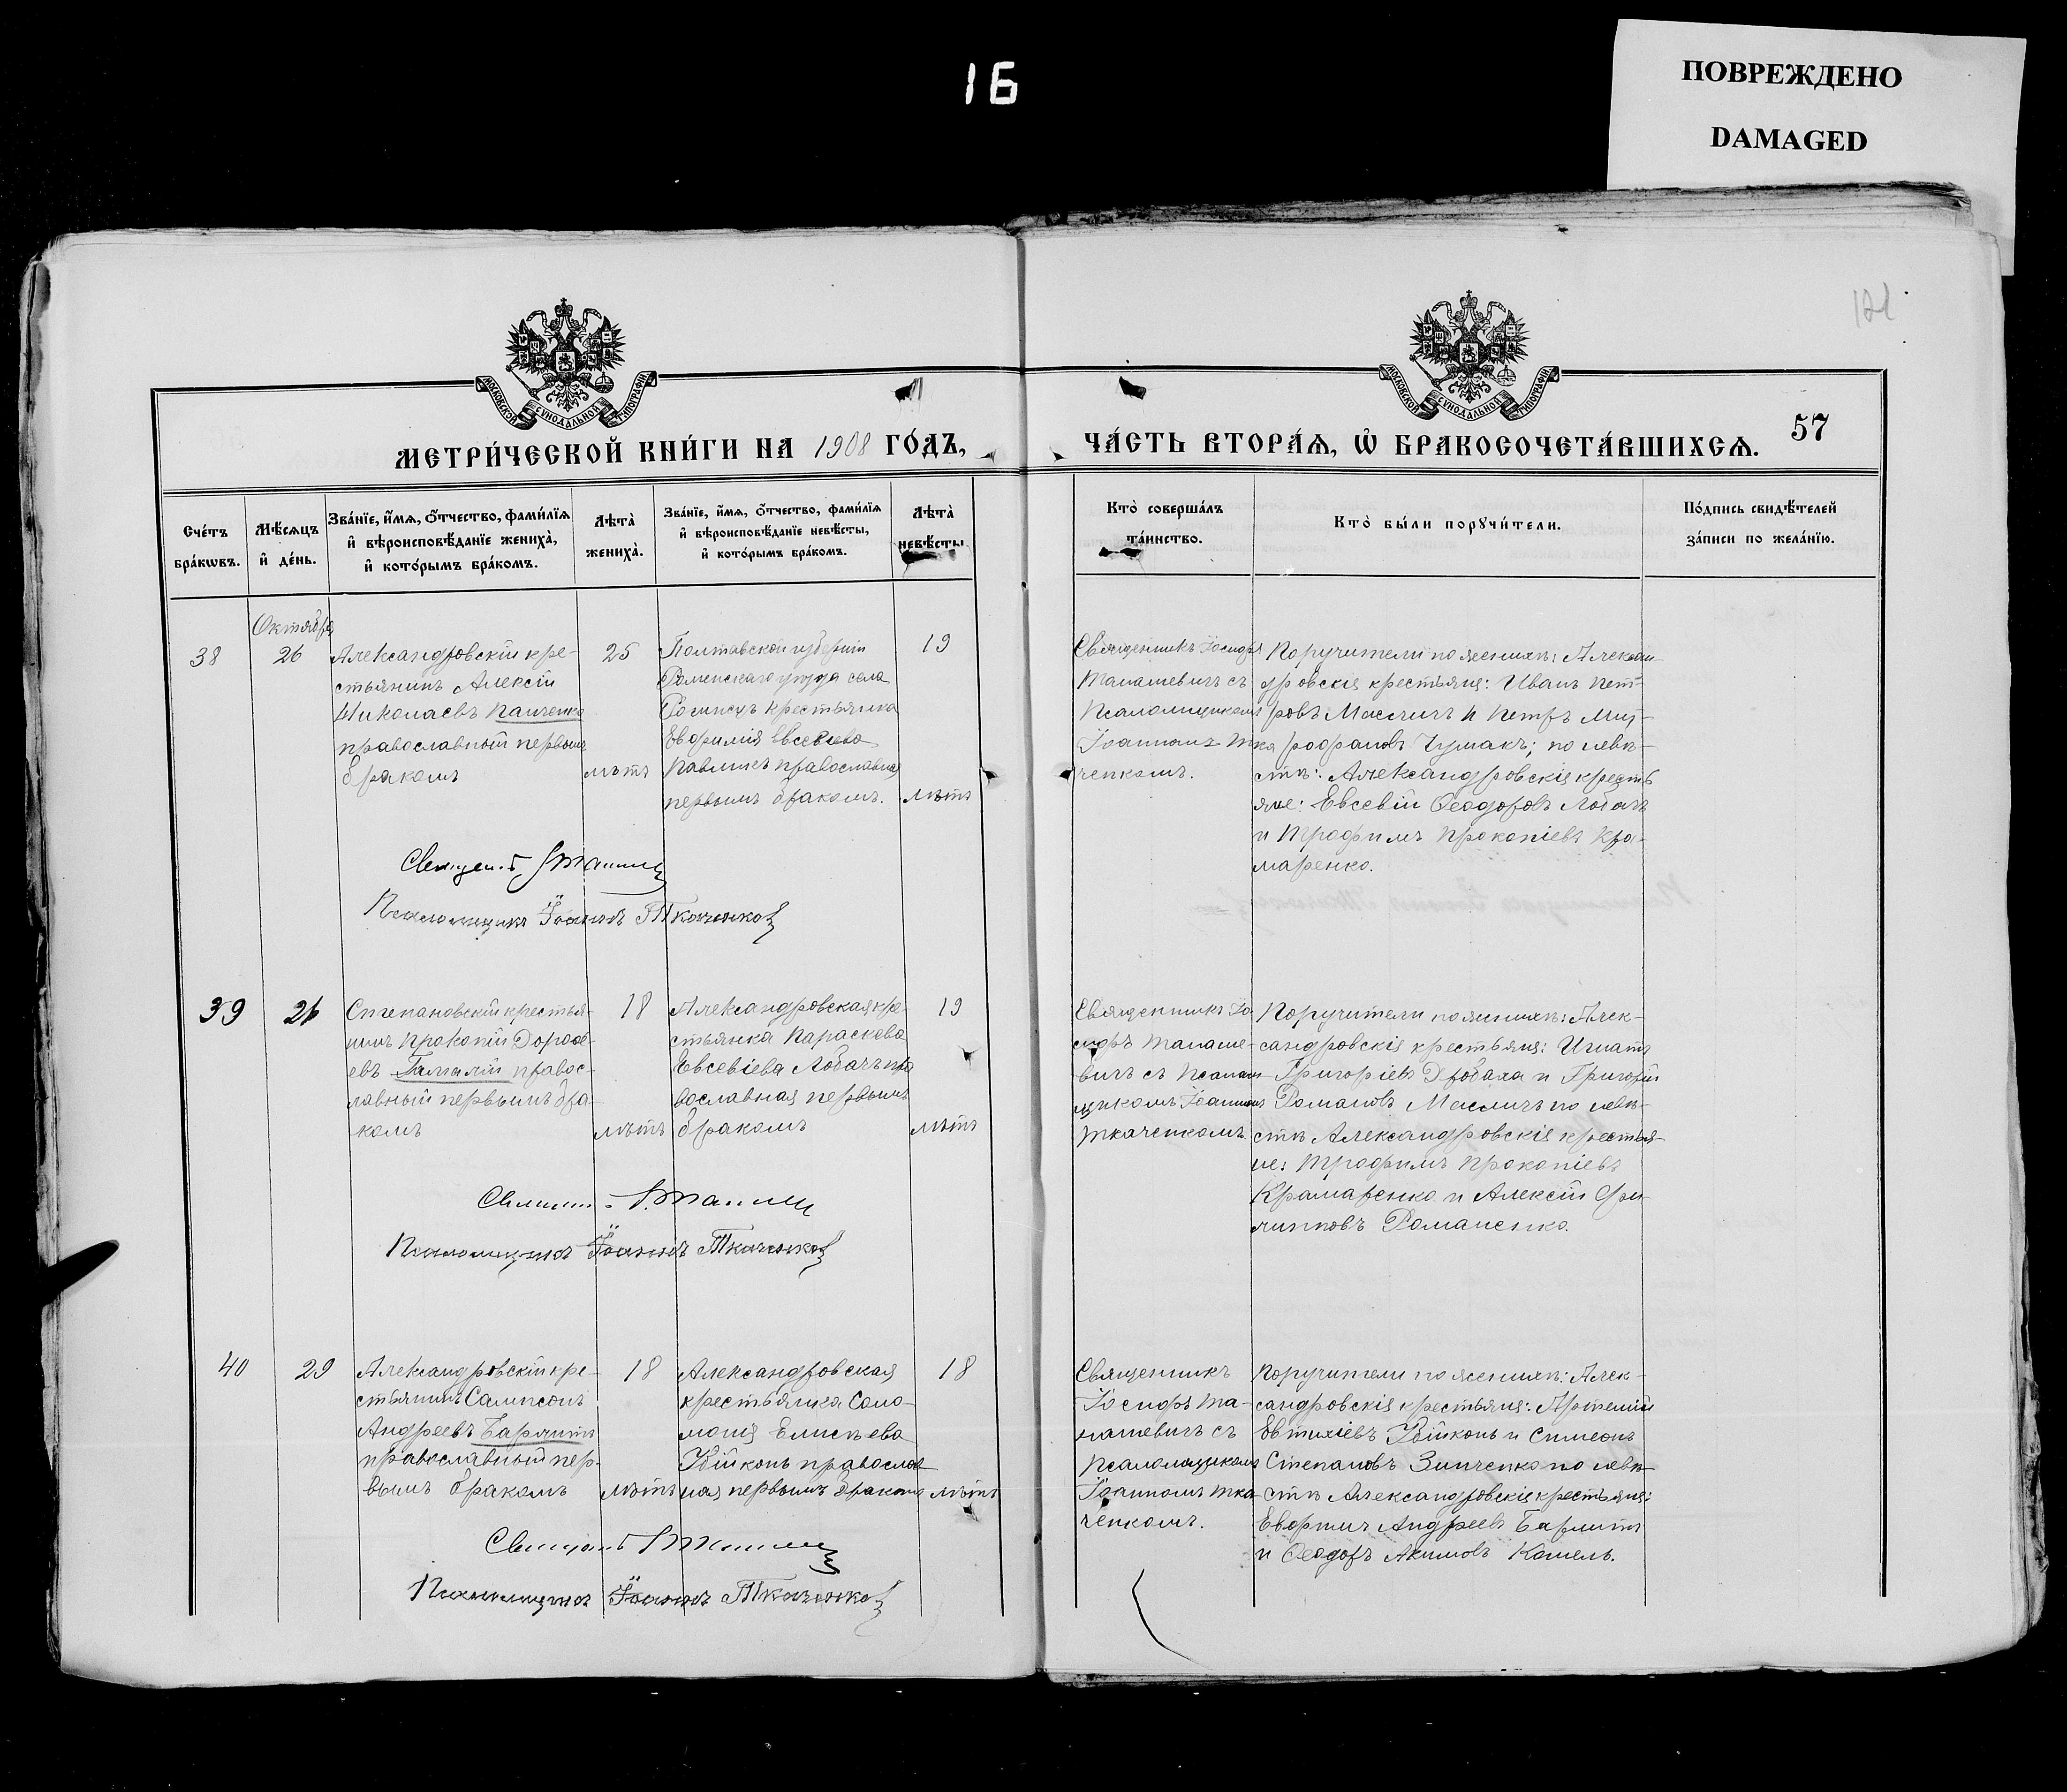 16
ПОВРЕЖДЕНО
DAMAGED
121
57
МОСКОВСКОЙ СѴНОДАЛЬНОЙ ТИПОГРАФІИ
МОСКОВСКОЙ СѴНОДАЛЬНОЙ ТИПОГРАФІИ
МЕТРИ́ЧЕСКОЙ КНИ́ГИ НА 1908 ГО́ДЪ,
ЧА́СТЬ ВТОРА́Ѧ, Ѡ҆ БРАКОСОЧЕТА́ВШИХСѦ.
Сче́тъ
бра́кѡвъ.
Мѣ́сѧцъ
и҆ де́нь.
Зва́нїе, и҆́мѧ, ѻ҆́тчество, фами́лїѧ
и҆ вѣроисповѣ́данїе жениха̀,
и҆ кото́рымъ бра́комъ.
Лѣта̀
жениха̀.
Зва́нїе, и҆́мѧ, ѻ҆́тчество, фами́лїѧ
и҆ вѣроисповѣ́данїе невѣ́сты,
и҆ кото́рымъ бра́комъ.
Лѣта̀
невѣ́сты.
Кто̀ соверша́лъ
та́инство.
Кто̀ бы́ли порꙋчи́тели.
По́дпись свидѣ́телей
за́писи по жела́нїю.
38
Октября
26
Александровскій кре-
стьянинъ Алексій
Николаевъ Панченко
православный первымъ
бракомъ
25
лѣтъ
Полтавской губерніи
Роменскаго уѣзда села
крестьянка
Евфимія Евсевіева
православная
первымъ бракомъ.
19
лѣтъ
Священникъ Іосифъ
Манашевичъ съ
Псаломщикомъ
Іоанномъ Тка
ченкомъ.
Поручители по женихѣ: Алексан-
дровскія крестьяне: Иванъ Пет-
ровъ Масличъ и Петръ Мит-
рофановъ Чумакъ; по невѣ-
стѣ: Александровскія крестья
яне: Евсевій Ѳеодоровъ Лобачъ
и Трофимъ Прокопіевъ Кра-
маренко.
Псаломщикъ Іоаннъ Ткаченко
39
26
Степановскій крестья-
нинъ Прокопій Дороѳе-
евъ Гамалій правос-
лавный первымъ бра-
комъ
18
лѣтъ
Александровская кре-
стьянка Параскева
Евсевіева Лобачъ пра
вославная первымъ
бракомъ
19
лѣтъ
Священникъ Іо
сифъ Манаше-
вичъ съ Псалом
щикомъ Іоанномъ
Ткаченкомъ
Поручители по женихѣ: Алек-
сандровскія крестьяне: Игнатъ
Григоріевъ Дробаха и Григорій
Романовъ Масличъ по невѣ-
стѣ Александровскія крестья-
не: Трофимъ Прокопіевъ
Крамаренко и Алексій Фи-
липповъ Романенко.
Псаломщикъ Іоаннъ Ткаченко
40
29
Александровскій кре-
стьянинъ Сампсонъ
Андреевъ
православный пер-
вымъ бракомъ
18
лѣтъ
Александровская
крестьянка Соло-
монія Елисѣева
православ
ная первымъ бракомъ
18
лѣтъ
Священникъ
Іосифъ Ма-
нашевичъ съ
Псаломщикомъ
Іоанномъ Тка
ченкомъ.
Поручители по женихѣ: Алек-
сандровскія крестьяне: Артемій
Евтихіевъ и Симеонъ
Степановъ Зинченко по невѣ-
стѣ Александровскія крестьяне:
Андреевъ
и Ѳеодоръ Акимовъ
Псаломщикъ Іоаннъ Ткаченко